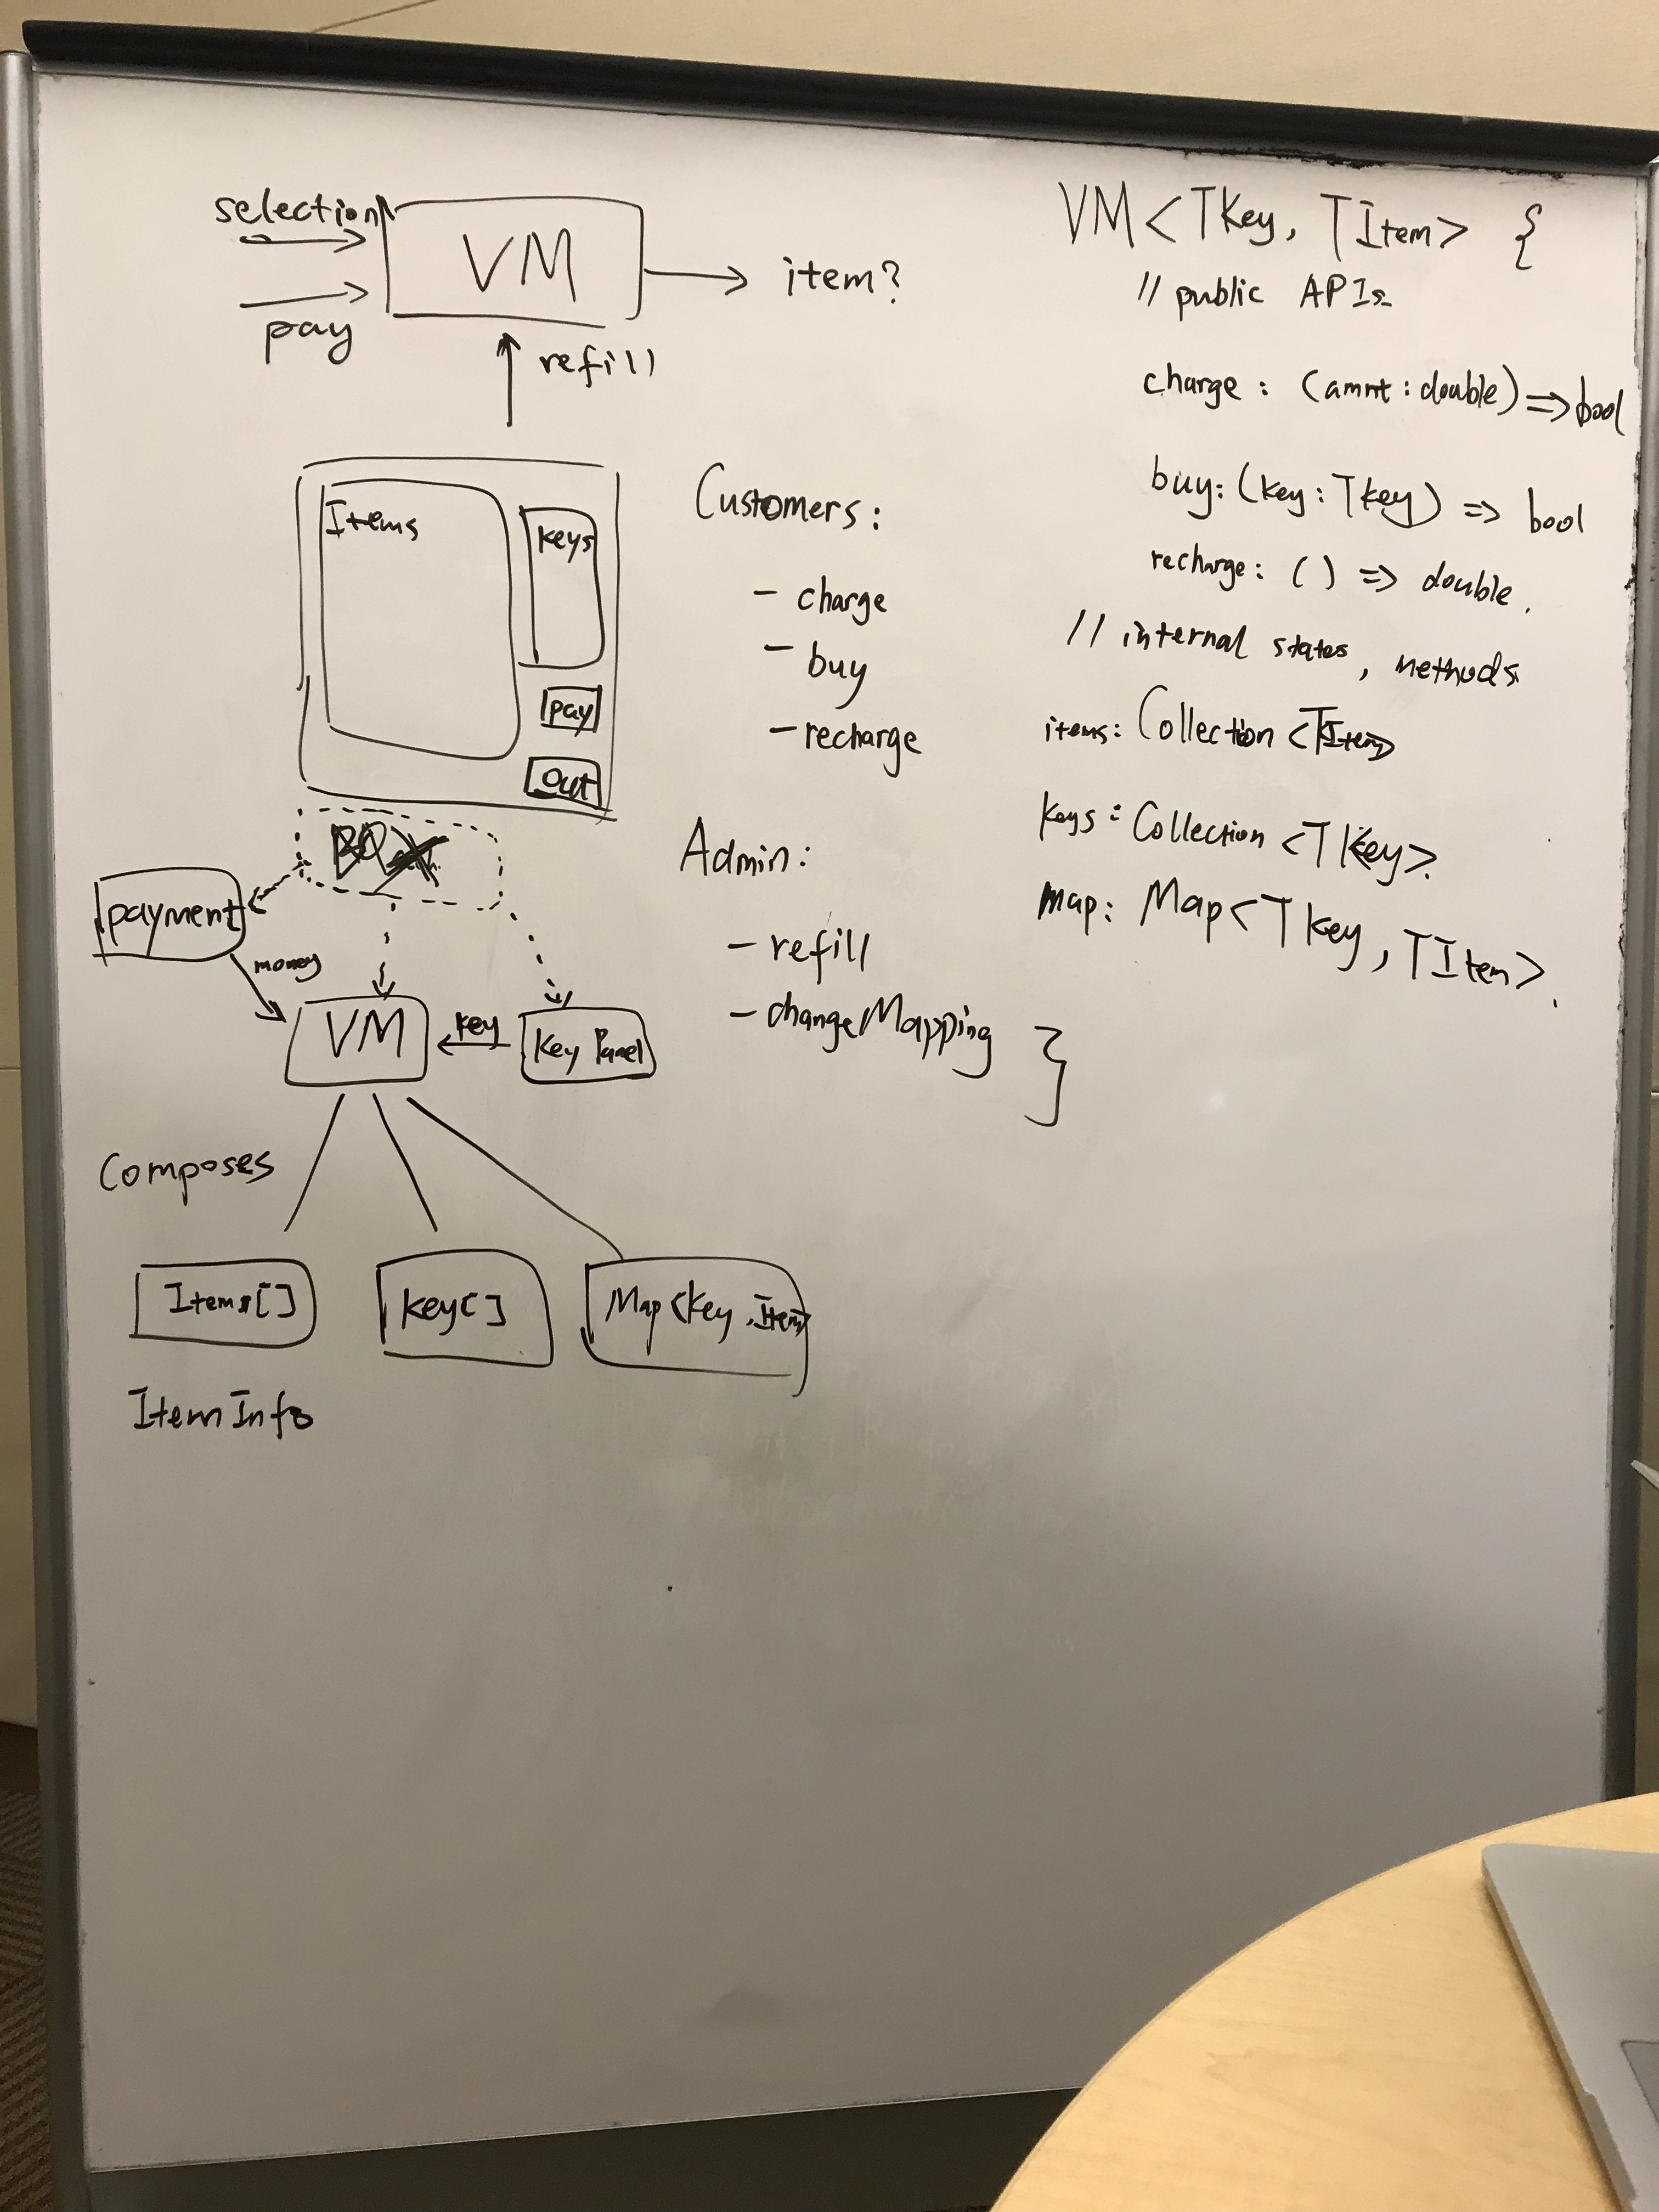 selection
VM
pay
item?
refill
Items
keys
pay
out
payment
money
VM
key
key Panel
Composes
Items[]
key[]
Map<key, Item>
ItemInfo
Customers:
- charge
- buy
- recharge
Admin:
- refill
- changeMapping
VM<TKey, TItem> {
// public APIs
charge: (amnt: double) => bool
buy: (key: Tkey) => bool
recharge: () => double.
// internal states, methods
items: Collection <TItem>
keys: Collection <TKey>
map: Map<Tkey, TItem>
}